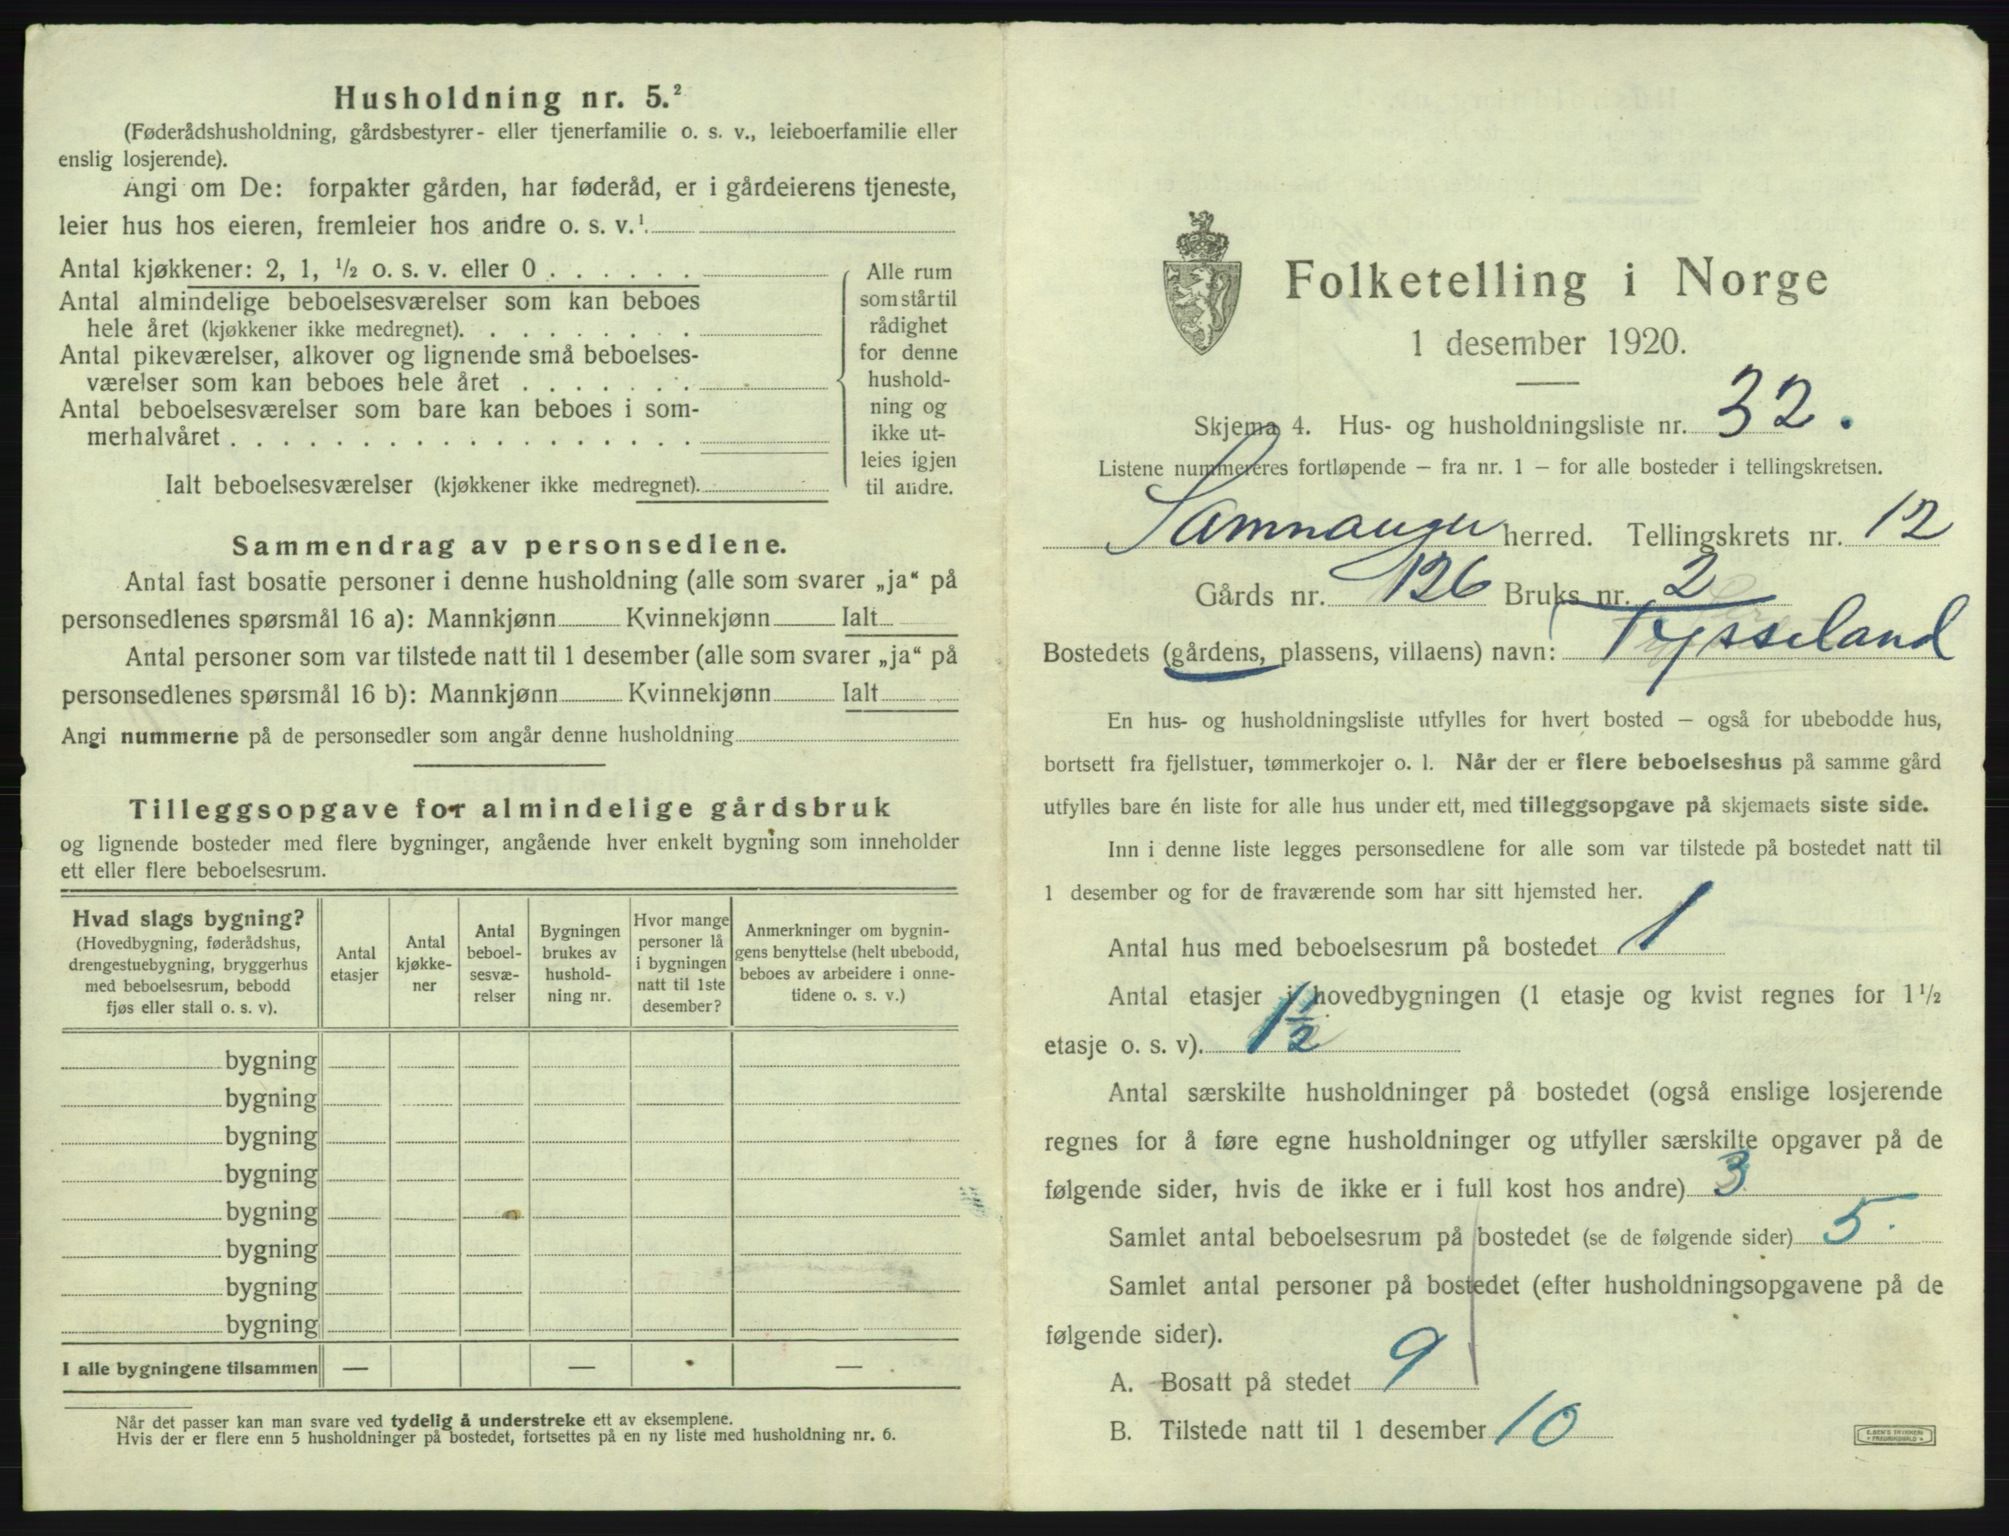 Husholdning nr. 5.²
(Føderådshusholdning, gårdsbestyrer- eller tjenerfamilie o. s. v., leieboerfamilie eller
enslig losjerende).
Angi om De: forpakter gården, har føderåd, er i gårdeierens tjeneste,
leier hus hos eieren, fremleier hos andre o. s. v.¹
Antal kjøkkener: 2, 1, ½ o. s. v. eller 0 . . . . . .
Antal almindelige beboelsesværelser som kan beboes
hele året (kjøkkener ikke medregnet). . . . . . . . .
Antal pikeværelser, alkover og lignende små beboelses-
værelser som kan beboes hele året . . . . . . .
Antal beboelsesværelser som bare kan beboes i som-
merhalvåret . . . . . . . . . . . . . . . . . .
Ialt beboelsesværelser (kjøkkener ikke medregnet).
Alle rum
som står til
rådighet
for denne
hushold-
ning og
ikke ut-
leies igjen
til andre.
Sammendrag av personsedlene.
Antal fast bosatte personer i denne husholdning (alle som svarer „ja“ på
personsedlenes spørsmål 16 a): Mannkjønn Kvinnekjønn Ialt
Antal personer som var tilstede natt til 1 desember (alle som svarer „ja“ på
personsedlenes spørsmål 16 b): Mannkjønn Kvinnekjønn Ialt
Angi nummerne på de personsedler som angår denne husholdning
Tilleggsopgave for almindelige gårdsbruk
og lignende bosteder med flere bygninger, angående hver enkelt bygning som inneholder
ett eller flere beboelsesrum.
Hvad slags bygning?
(Hovedbygning, føderådshus,
drengestuebygning, bryggerhus
med beboelsesrum, bebodd
fjøs eller stall o. s. v).
Antal
etasjer
Antal
kjøkke-
ner
Antal
beboel-
sesvæ-
relser
Bygningen
brukes av
hushold-
ning nr.
Hvor mange
personer lå
i bygningen
natt til 1ste
desember?
Anmerkninger om bygnin-
gens benyttelse (helt ubebodd,
beboes av arbeidere i onne-
tidene o. s. v.)
bygning
bygning
bygning
bygning
bygning
bygning
bygning
bygning
I alle bygningene tilsammen — — —
Når det passer kan man svare ved tydelig å understreke ett av eksemplene.
Hvis der er flere enn 5 husholdninger på bostedet, fortsettes på en ny liste med husholdning nr. 6.
Folketelling i Norge
1 desember 1920.
Skjema 4. Hus- og husholdningsliste nr. 32.
Listene nummereres fortløpende – fra nr. 1 – for alle bosteder i tellingskretsen.
Samnanger herred. Tellingskrets nr. 12
Gårds nr. 126 Bruks nr. 2
Bostedets (gårdens, plassens, villaens) navn: Tysseland
En hus- og husholdningsliste utfylles for hvert bosted – også for ubebodde hus,
bortsett fra fjellstuer, tømmerkojer o. l. Når der er flere beboelseshus på samme gård
utfylles bare én liste for alle hus under ett, med tilleggsopgave på skjemaets siste side.
Inn i denne liste legges personsedlene for alle som var tilstede på bostedet natt til
1 desember og for de fraværende som har sitt hjemsted her.
Antal hus med beboelsesrum på bostedet 1
Antal etasjer i hovedbygningen (1 etasje og kvist regnes for 1½
etasje o. s. v). 1½
Antal særskilte husholdninger på bostedet (også enslige losjerende
regnes for å føre egne husholdninger og utfyller særskilte opgaver på de
følgende sider, hvis de ikke er i full kost hos andre) 3
Samlet antal beboelsesrum på bostedet (se de følgende sider) 5.
Samlet antal personer på bostedet (efter husholdningsopgavene på de
følgende sider).
A. Bosatt på stedet 9
B. Tilstede natt til 1 desember 10